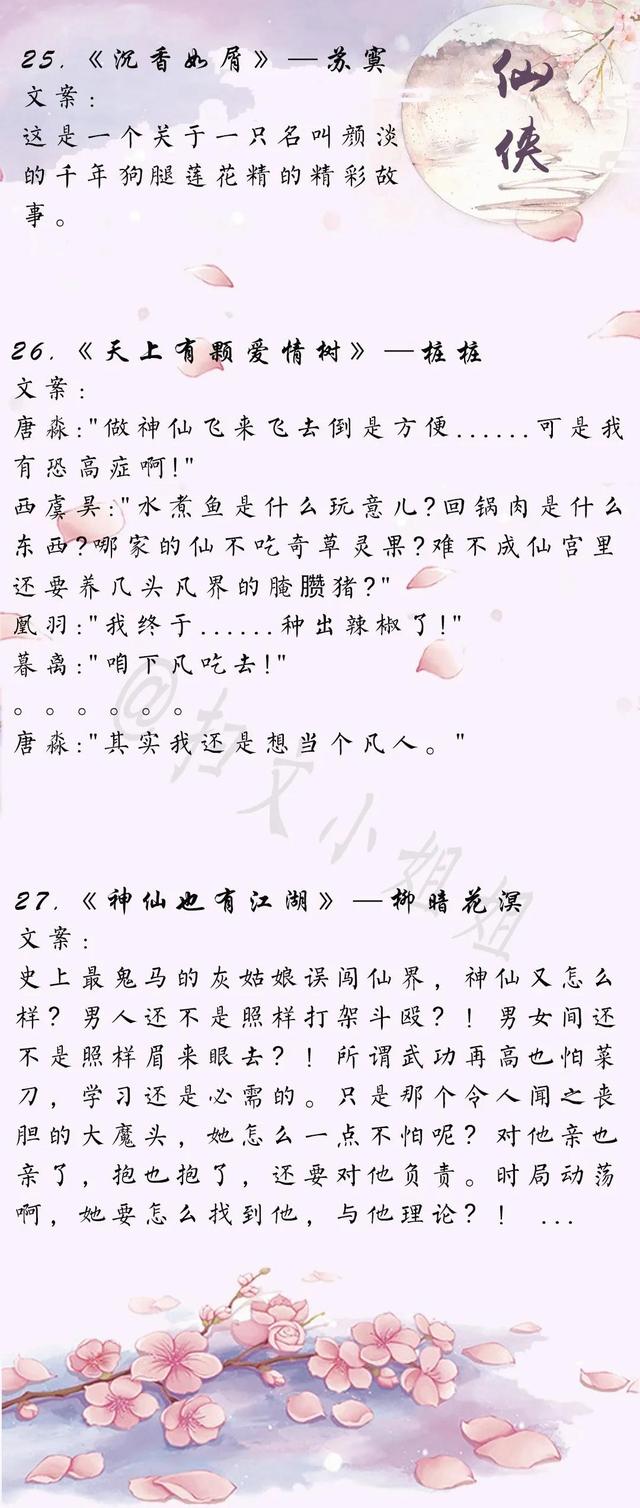 25.《沉香如屑》—苏寞
仙
侠
文案：
这是一个关于一只名叫颜淡
的千年狗腿莲花精的精彩故
事。
26.《天上有颗爱情树》—桩桩
文案：
唐淼:"做神仙飞来飞去倒是方便......可是我
有恐高症啊!"
西虞昊:"水煮鱼是什么玩意儿?回锅肉是什么
东西?哪家的仙不吃奇草灵果?难不成仙宫里
还要养几头凡界的腌臜猪?"
凰羽:"我终于......种出辣椒了!"
暮离:"咱下凡吃去!"
。。。。。。
唐淼:"其实我还是想当个凡人。"
@扫文小姐姐
27.《神仙也有江湖》—柳暗花溟
文案：
史上最鬼马的灰姑娘误闯仙界，神仙又怎么
样？男人还不是照样打架斗殴？！男女间还
不是照样眉来眼去？！所谓武功再高也怕菜
刀，学习还是必需的。只是那个令人闻之丧
胆的大魔头，她怎么一点不怕呢？对他亲也
亲了，抱也抱了，还要对他负责。时局动荡
啊，她要怎么找到他，与他理论？！ ...